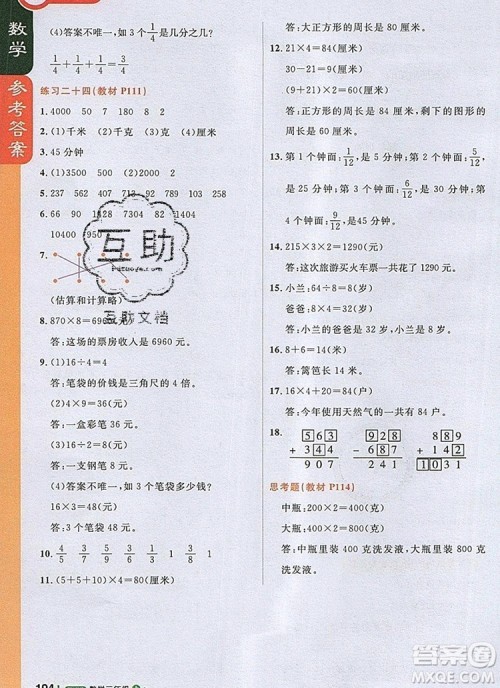 数学
参考答案
(4)答案不唯一,如 3 个1/4是几分之几?
1/4+1/4+1/4=3/4
练习二十四(教材 P111)
1. 4000 50 740 180 8 2
2. (1)千米 (2)千克 (3)克
3. 45 分钟
4. (1)3500 (2)150
5. 237 562 407 287 631
6. 66 240
10400 950
7.
(估算和计算略)
8. 870×8=6960(元)
答:这场的票房收入是 6960 元。
9. (1)16÷4=4
答:笔袋的价钱是三角尺的 4 倍。
(2)4×9=36(元)
答:一盒彩笔 36 元。
答:一支钢笔 8 元。
(4)答案不唯一,如 3 个笔袋多少钱?
16×3=48(元)
答:3 个笔袋 48 元。
10. 4/5
11. (5+5+10)×4=80(厘米)
答:大正方形的周长是 80 厘米。
12. 21×4=84(厘米)
30-21=9(厘米)
(9+21)×2=60(厘米)
答:正方形的周长是 84 厘米,剩下的图形的
周长是 60 厘米。
13. 第 1 个钟面:1/12,是 5 分钟;第 2 个钟面:
6/12,是 30 分钟;第 3 个钟面:5/12,是 25 分
钟;第 4 个钟面:9/12,是 45 分钟。
14. 215×3×2=1290(元)
答:这次旅游买火车票一共花了 1290 元。
15. 小兰:64÷8=8(岁)
爸爸:42-8=34(岁)
答:小兰的爸爸今年 34 岁。
16. 8+6=14(米)
答:篱笆长 14 米。
17. 16×4+20=84(户)
答:今年使用天然气的一共有 84 户。
18. 563
+ 344
907
831
+ 200
1031
思考题(教材 P114)
中瓶:200×2=400(克)
大瓶:400×2=800(克)
答:中瓶里装 400 克洗发液,大瓶里装 800
克洗发液。
互助
hutouwe.com
互助文档
作业答案
MXQE.COM